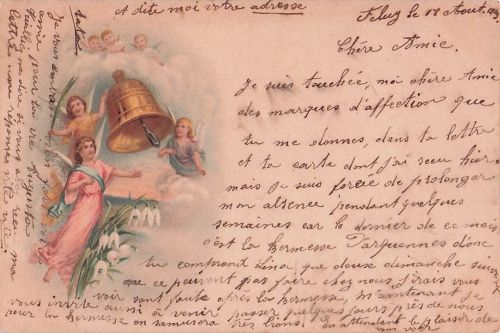 A dite moi votre adresse
Feluy le 18 Aout
Chère Amie.
Je suis touchée, ma chère Amie
des marques d'affection que
tu me donnes, dans ta lettre
et ta carte dont j'ai recu hier
mais je suis forcée de prolonger
mon absence pendant quelques
semaines car le dernier de ce mois
c'est la Kermesse D'arquennes donc
tu comprend Lina que deux dimanche suiv
ce peuvent pas faire chez nous j'irais vous
voir sans faute après la Kermesse, maintenant je
vous invite aussi à venir passer quelques jours près de nous
pour la Kermesse on s'amusera très bien. En attendant le plaisir de
Je vous
amie pour la vie Augusta
me dire si vous a recu ma
lettre